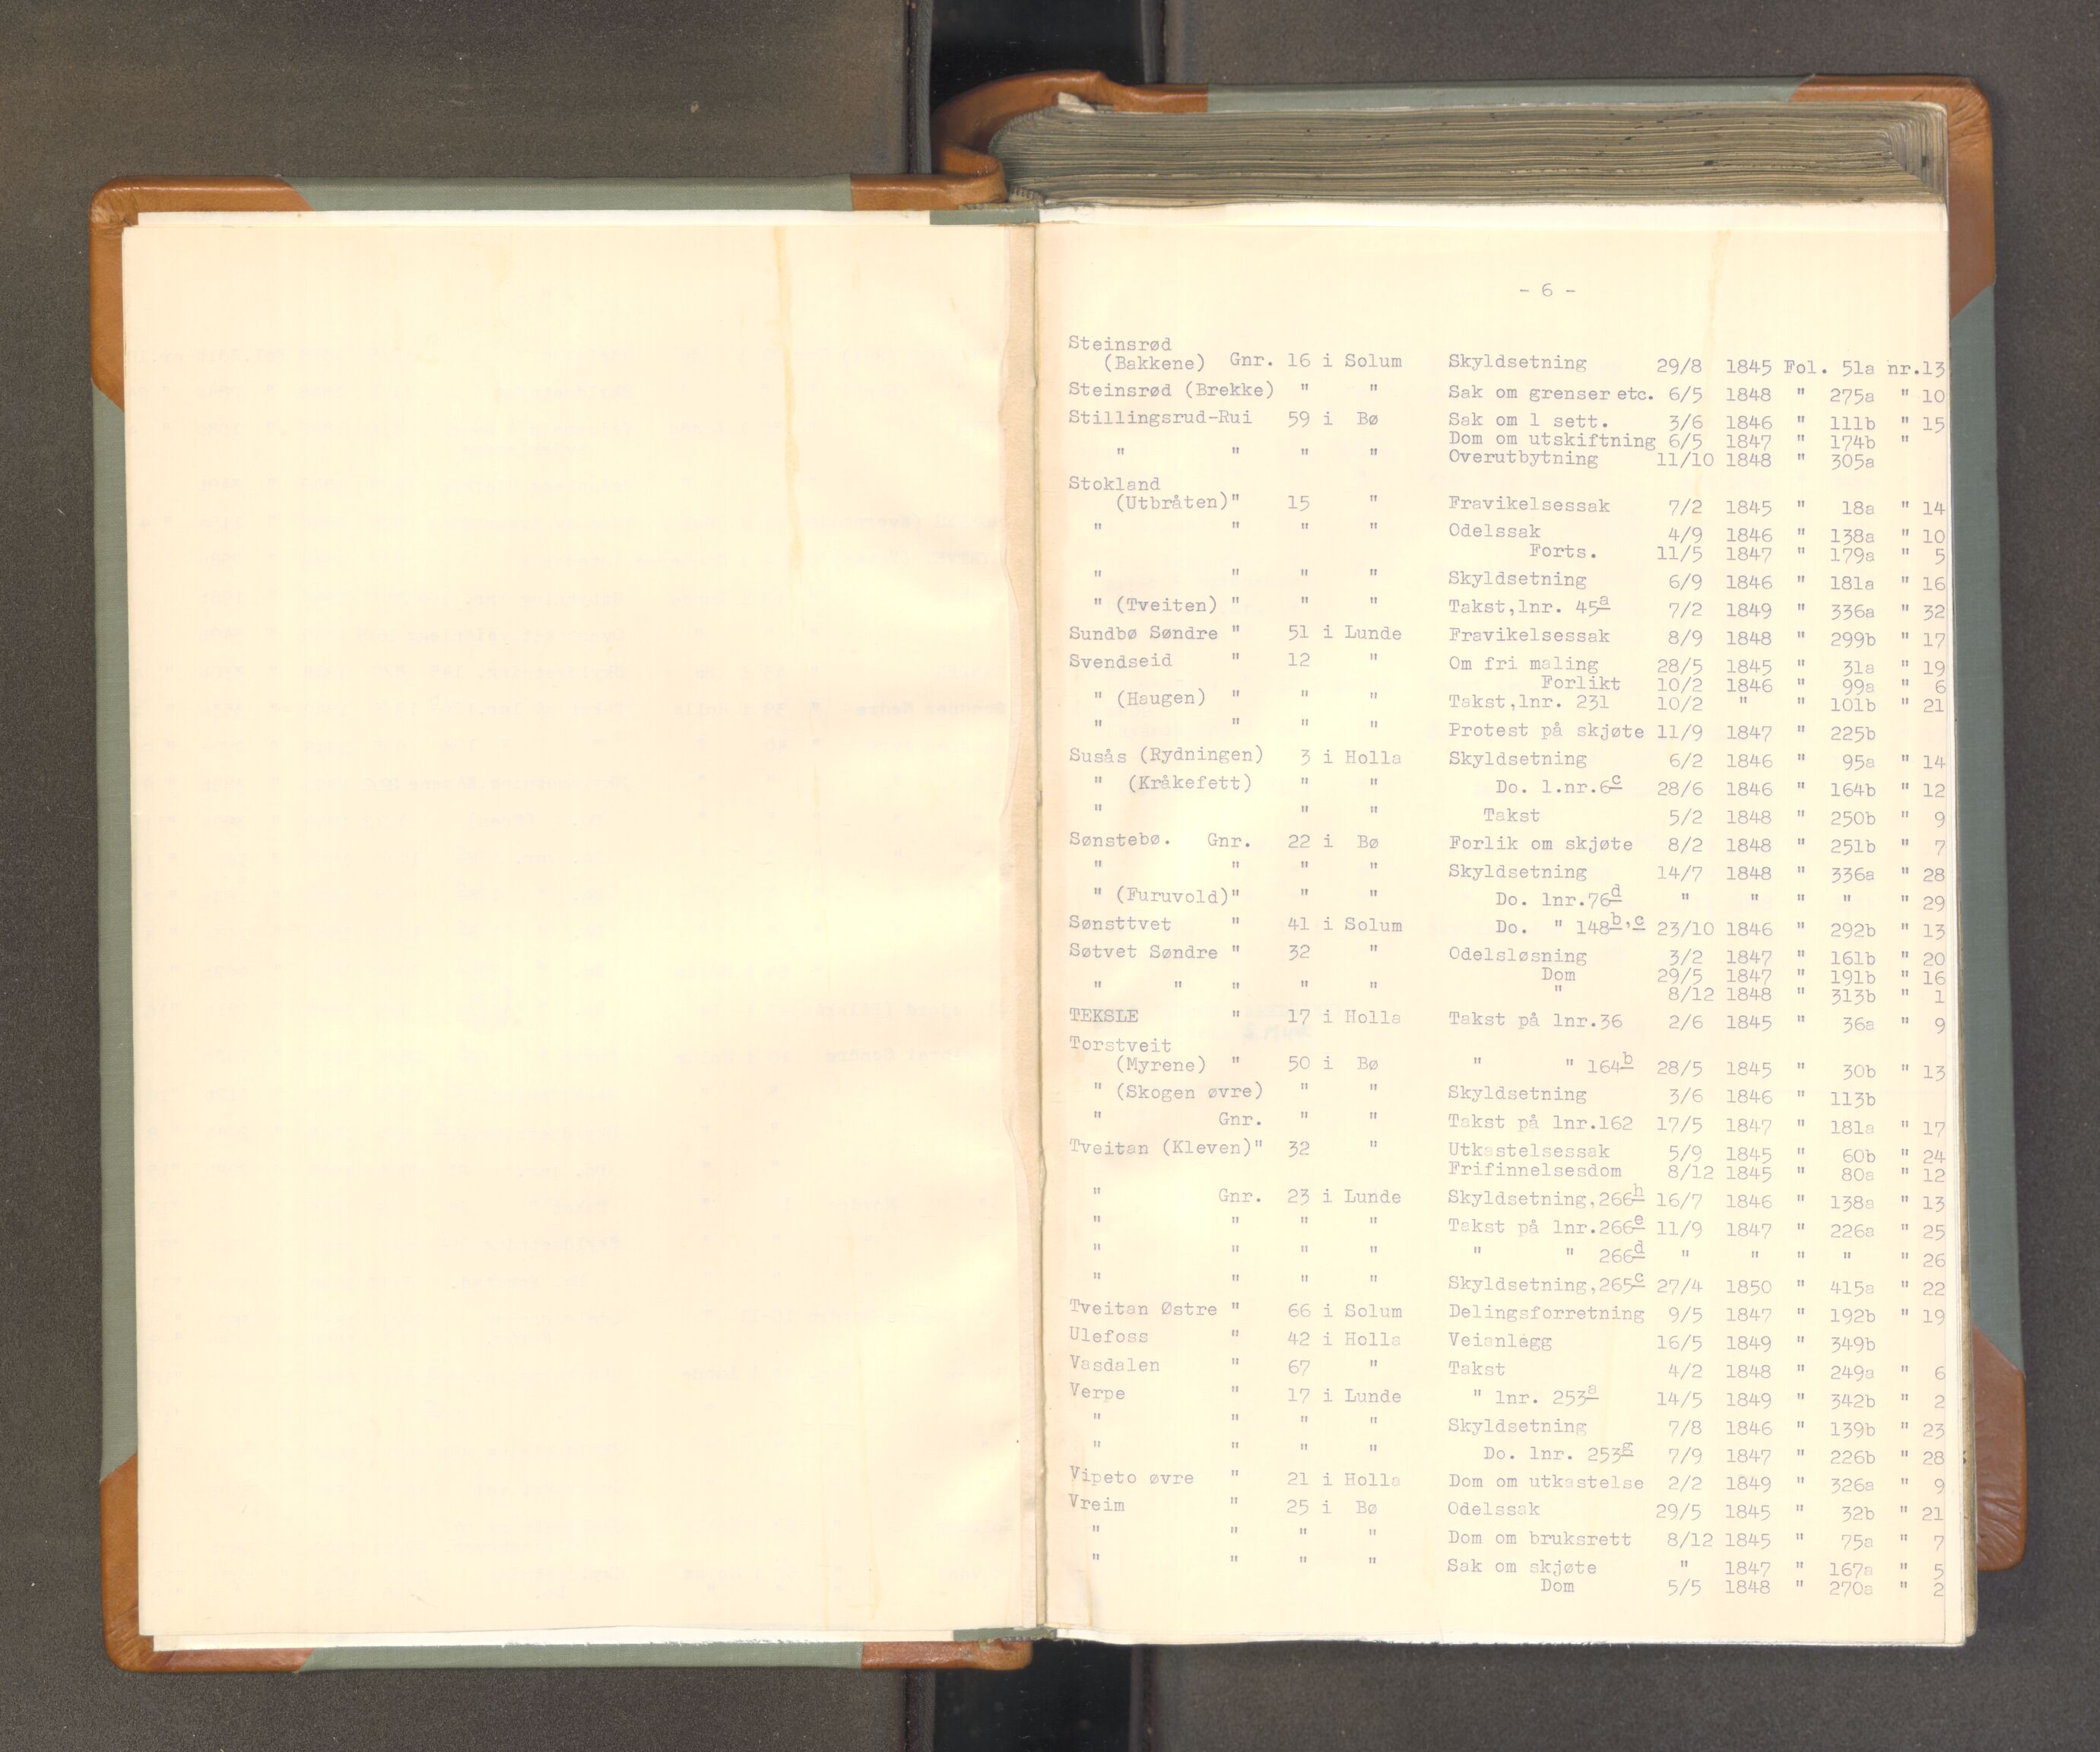 - 6 -
Steinsrød
(Bakkene) Gnr. 16 i Solum Skyldsetning 29/8 1845 Fol. 51a nr.13
Steinsrød (Brekke) " " Sak om grenser etc. 6/5 1848 " 275a " 10
Stillingsrud-Rui 59 i Bø Sak om 1 sett. 3/6 1846 " 111b " 15
Dom om utskiftning 6/5 1847 " 174b "
" " " " Overutbytning 11/10 1848 " 305a
Stokland
(Utbråten)" 15 " Fravikelsessak 7/2 1845 " 18a " 14
" " " " Odelssak 4/9 1846 " 138a " 10
Forts. 11/5 1847 " 179a " 5
" " " " Skyldsetning 6/9 1846 " 181a " 16
" (Tveiten) " " " Takst,lnr. 45a 7/2 1849 " 336a " 32
Sundbø Søndre " 51 i Lunde Fravikelsessak 8/9 1848 " 299b " 17
Svendseid " 12 " Om fri maling 28/5 1845 " 31a " 19
Forlikt 10/2 1846 " 99a " 6
" (Haugen) " " " Takst,lnr. 231 10/2 " " 101b " 21
" " " " Protest på skjøte 11/9 1847 " 225b
Susås (Rydningen) 3 i Holla Skyldsetning 6/2 1846 " 95a " 14
" (Kråkefett) " " Do. l.nr.6c 28/6 1846 " 164b " 12
" " " Takst 5/2 1848 " 250b " 9
Sønstebø. Gnr. 22 i Bø Forlik om skjøte 8/2 1848 " 251b " 7
" " " " Skyldsetning 14/7 1848 " 336a " 28
" (Furuvold)" " " Do. lnr.76d " " " " " 29
Sønsttvet " 41 i Solum Do. " 148b,c 23/10 1846 " 292b " 13
Søtvet Søndre " 32 " Odelsløsning 3/2 1847 " 161b " 20
Dom 29/5 1847 " 191b " 16
" " " " " " 8/12 1848 " 313b " 1
TEKSLE " 17 i Holla Takst på lnr.36 2/6 1845 " 36a " 9
Torstveit
(Myrene) " 50 i Bø " " 164b 28/5 1845 " 30b " 13
" (Skogen øvre) " " Skyldsetning 3/6 1846 " 113b
" Gnr. " " Takst på lnr.162 17/5 1847 " 181a " 17
Tveitan (Kleven)" 32 " Utkastelsessak 5/9 1845 " 60b " 24
Frifinnelsesdom 8/12 1845 " 80a " 12
" Gnr. 23 i Lunde Skyldsetning,266h 16/7 1846 " 138a " 13
" " " " Takst på lnr.266e 11/9 1847 " 226a " 25
" " " " " " 266d " " " " " 26
" " " " Skyldsetning,265c 27/4 1850 " 415a " 22
Tveitan Østre " 66 i Solum Delingsforretning 9/5 1847 " 192b " 19
Ulefoss " 42 i Holla Veianlegg 16/5 1849 " 349b
Vasdalen " 67 " Takst 4/2 1848 " 249a " 6
Verpe " 17 i Lunde " lnr. 253a 14/5 1849 " 342b " 2
" " " " Skyldsetning 7/8 1846 " 139b " 23
" " " " Do. lnr. 253g 7/9 1847 " 226b " 28
Vipeto øvre " 21 i Holla Dom om utkastelse 2/2 1849 " 326a " 9
Vreim " 25 i Bø Odelssak 29/5 1845 " 32b " 21
" " " " Dom om bruksrett 8/12 1845 " 75a " 7
" " " " Sak om skjøte " 1847 " 167a " 5
Dom 5/5 1848 " 270a " 2